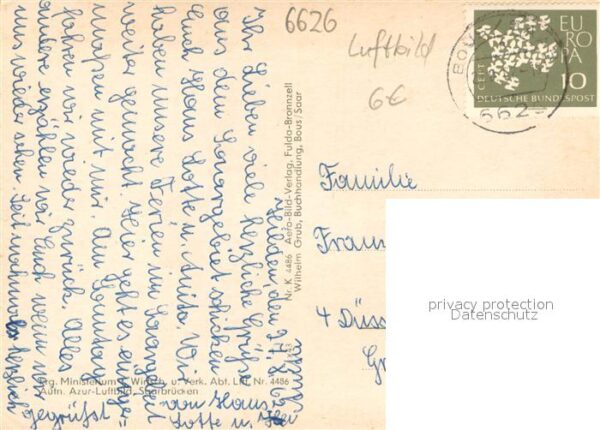 6626
Luftbild
6€
EUROPA
CEPT
10
DEUTSCHE BUNDESPOST
BOUS
6626
Hilden, den 27.8.62
Ihr Lieben viele herzliche Grüße
aus dem Saargebiet schicken
Euch Hans Lotte u. Anita. Wir
haben unsere Ferien im Saargebiet
weiter gemacht. Hier geht es einiger-
maßen mit nur. Am Sonntag
fahren wir wieder zurück. Alles
andere erzählen wir Euch wenn wir
uns wieder sehen. Seid nochmals herzlich
gegrüßt von Hans
Lotte u.
Nr. K 4486 Aero-Bild-Verlag, Fulda-Bronnzell
Wilhelm Grub, Buchhandlung, Bous/Saar
Frg. Ministerium f. Wirtsch. u. Verk. Abt. Lft. Nr. 4486
Aufn. Azur-Luftbild, Saarbrücken
Familie
Franz
4 Düss
privacy protection
Datenschutz